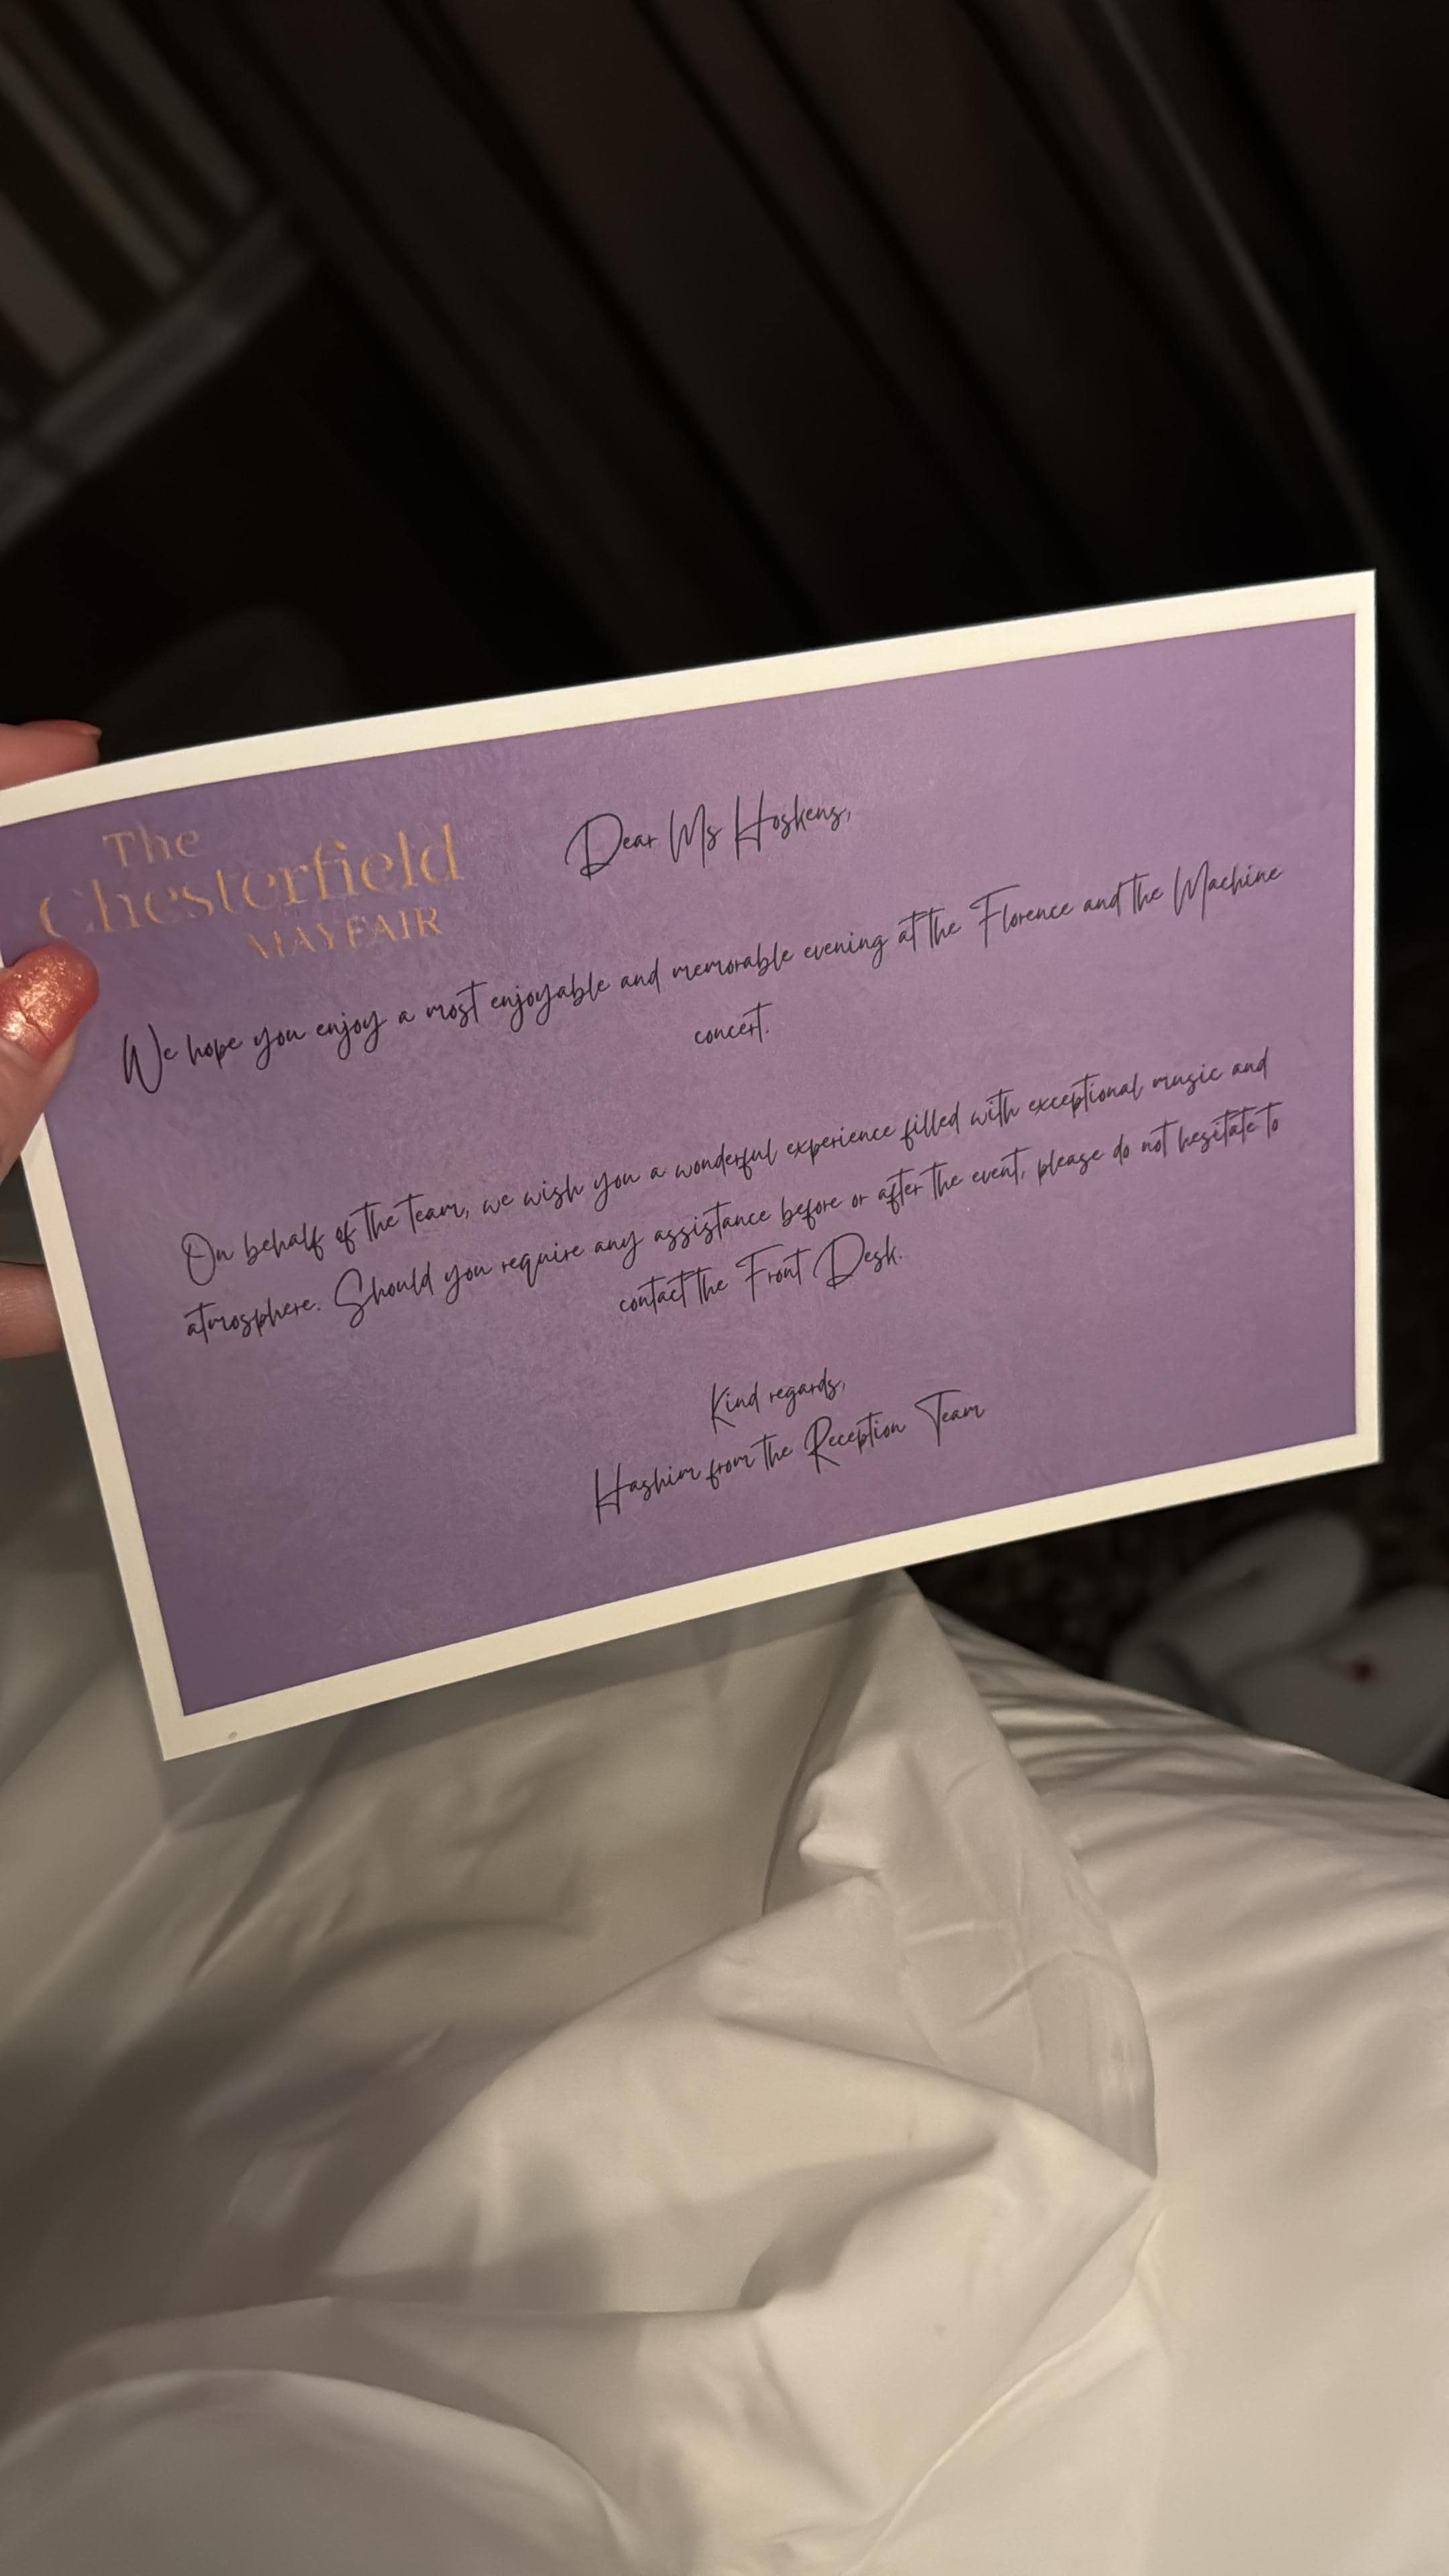 The
Chesterfield
MAYFAIR
Dear Ms Hoskens,
We hope you enjoy a most enjoyable and memorable evening at the Florence and the Machine
concert.
On behalf of the team, we wish you a wonderful experience filled with exceptional music and
atmosphere. Should you require any assistance before or after the event, please do not hesitate to
contact the Front Desk.
Kind regards,
Hashim from the Reception Team